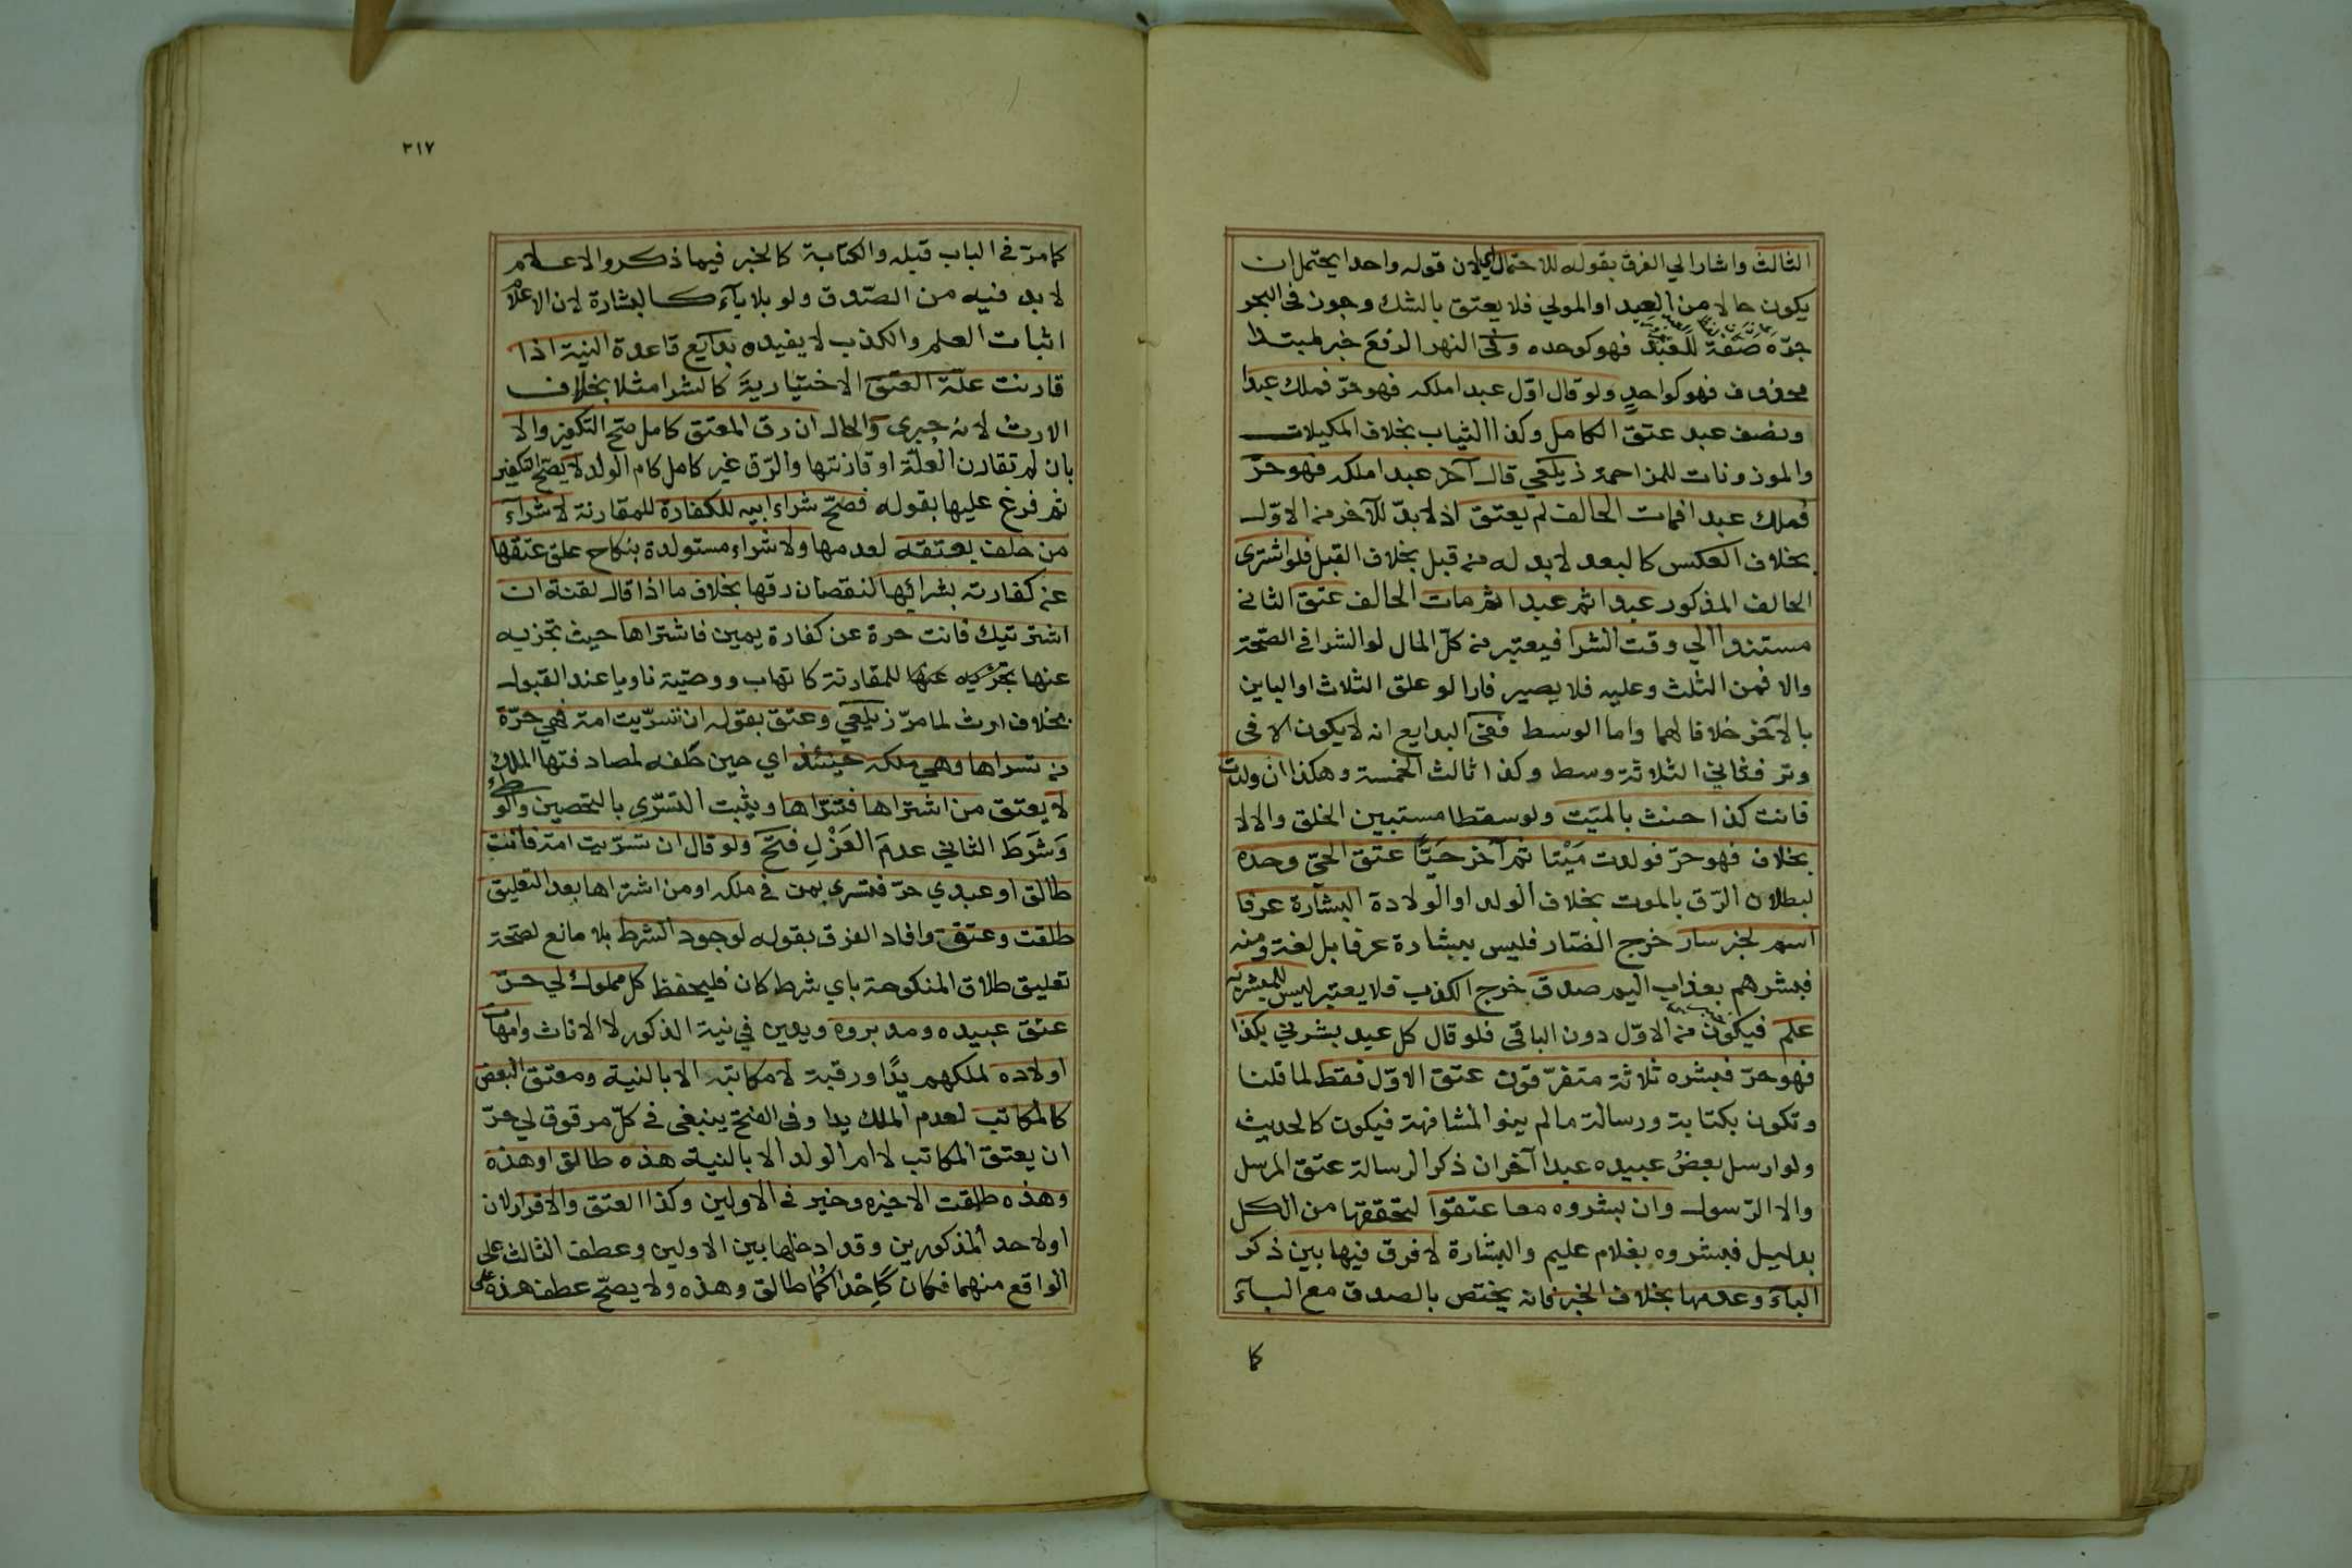 الثالث واشار الي الفرق بقوله للاحتمال اي لان قوله واحدا يحتمل ان
يكون حالا من العبد او المولي فلا يعتق بالشك وجوز في البحر
جرّه صفة للعبد فهو كوحده وفي النهر الرفع خبر لمبتدا
محذوف فهو كواحدٍ ولو قال اوّل عبد املكه فهو حرّ فملك عبدا
ونصف عبد عتق الكامل وكذا الثياب بخلاف المكيلات
والموزونات للمزاحمة زيلعي قال آخر عبد املكه فهو حرّ
فملك عبدا فمات الحالف لم يعتق اذ لا بدّ للآخر من الاوّل
بخلاف العكس كالبعد لا بد له من قبل بخلاف القبل فلو اشتري
الحالف المذكور عبدا ثم عبدا ثم مات الحالف عتق الثاني
مستندا الي وقت الشرا فيعتبر من كلّ المال لو الشرا في الصّحة
والا فمن الثلث وعليه فلا يصير فارا لو علق الثلاث او الباين
بالآخر خلافا لهما واما الوسط ففي البدايع انه لا يكون الا في
وتر فثاني الثلاثة وسط وكذا ثالث الخمسة وهكذا ان ولدت
فانت كذا حنث بالميّت ولو سقطا مستبين الخلق والا لا
بخلاف فهو حرّ فولدت مَيْتا ثم آخر حَيًّا عتق الحيّ وحده
لبطلان الرّق بالموت بخلاف الولد او الولادة البشارة عرفا
اسم لخبر سار خرج الضار فليس ببشارة عرفا بل لغة ومنه
فبشرهم بعذاب اليم صدق خرج الكذب فلا يعتبر ليس للمبشر به
علم فيكون من الاوّل دون الباقي فلو قال كل عبد بشرني بكذا
فهو حرّ فبشره ثلاثة متفرّقون عتق الاوّل فقط لما قلنا
وتكون بكتابة ورسالة ما لم ينو المشافهة فيكون كالحديث
ولو ارسل بعضُ عبيده عبدا آخر ان ذكر الرسالة عتق المرسل
والا الرّسول وان بشروه معا عتقوا لتحققها من الكل
بدليل فبشروه بغلام عليم والبشارة لا فرق فيها بين ذكر
البآء وعدمها بخلاف الخبر فانه يختص بالصدق مع البآء
كا
٣١٧
كما مرّ في الباب قبله والكتابة كالخبر فيما ذكر والاعلام
لا بد فيه من الصّدق ولو بلا بآء كالبشارة لان الاعلام
اثبات العلم والكذب لا يفيده بدايع قاعدة النية اذا
قارنت علّة العتق الاختيارية كالشرا مثلا بخلاف
الارث لانه جبري والحال ان رق المعتق كامل صح التكفير والا
بان لم تقارن العلّة او قارنتها والرّق غير كامل كام الولد لا يصح التكفير
ثم فرع عليها بقوله فصحّ شراء ابيه للكفارة للمقارنة لا شرآء
من حلف بعتقه لعدمها ولا شراء مستولدة بنكاح علق عتقها
عن كفارته بشرائها لنقصان رقها بخلاف ما اذا قال لقنة ان
اشتريتك فانت حرة عن كفارة يمين فاشتراها حيث تجزيه
عنها للمقارنة كاتهاب ووصيّة ناويا عند القبول
بخلاف ارث لما مرّ زيلعي وعتق بقوله ان تسرّيت امة فهي حرّة
من تسراها وهي ملكه حينئذ اي حين حلفه لمصادفتها الملك
لا يعتق من اشتراها فتسرّاها ويثبت التسرّي بالتحصين والوطء
وَشَرَطَ الثاني عدمَ العَزْلِ فتح ولو قال ان تسرّيت امة فانتِ
طالق او عبدي حرّ فتسري بمن في ملكه او من اشتراها بعد التعليق
طلقت وعتق وافاد الفرق بقوله لوجود الشرط بلا مانع لصحّة
تعليق طلاق المنكوحة باي شرط كان فليحفظ كل مملوك لي حرّ
عتق عبيده ومدبروه ويدين في نية الذكور لا الاناث وامهات
اولاده لملكهم يدًا ورقبة لا مكاتبه الا بالنية ومعتق البعض
كالمكاتب لعدم الملك يدا وفي الفتح ينبغي في كلّ مرقوق لي حرّ
ان يعتق المكاتب لا ام الولد الا بالنية هذه طالق او هذه
وهذه طلقت الاخيره وخير في الاولين وكذا العتق والاقرار لان
او لاحد المذكورين وقد ادخلها بين الاولين وعطف الثالث على
الواقع منهما فكان كَاِحْداكُما طالق وهذه ولا يصحّ عطف هذه على